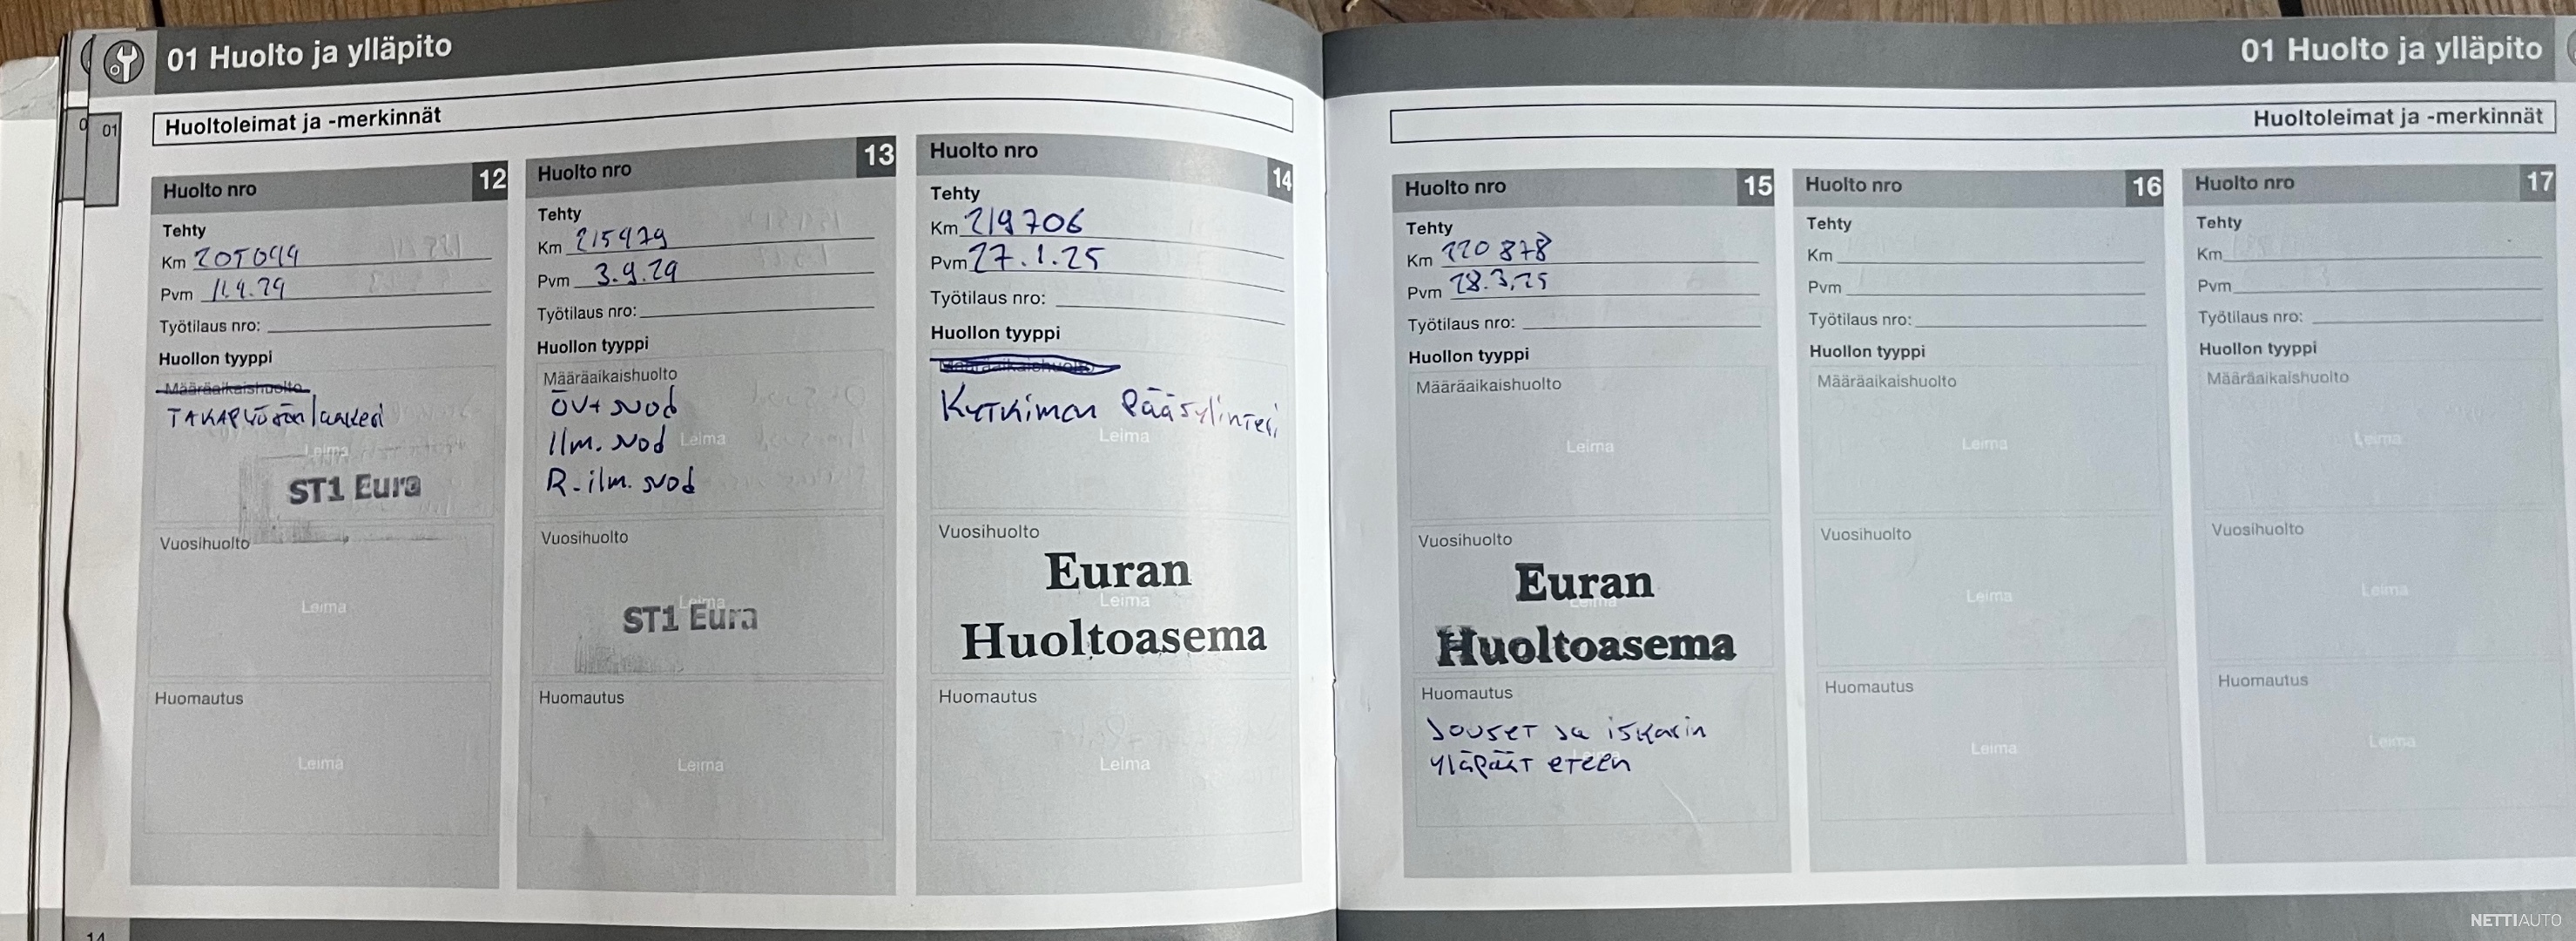 01 Huolto ja ylläpito
Huoltoleimat ja -merkinnät
01
Huolto nro 12
Tehty
Km 205044
Pvm 11.4.24
Työtilaus nro:
Huollon tyyppi
Määräaikaishuolto
TAKAPyörän laakeri
Leima
ST1 Eura
Vuosihuolto
Leima
Huomautus
Leima
Huolto nro 13
Tehty
Km 215479
Pvm 3.9.24
Työtilaus nro:
Huollon tyyppi
Määräaikaishuolto
ÖV+ suod
Ilm. suod
Leima
R-ilm. suod
Vuosihuolto
Leima
ST1 Eura
Huomautus
Leima
Huolto nro 14
Tehty
Km 219706
Pvm 27.1.25
Työtilaus nro:
Huollon tyyppi
Määräaikaishuolto
Kytkimen Pääsylinteri
Leima
Vuosihuolto
Euran
Leima
Huoltoasema
Huomautus
Leima
14
01 Huolto ja ylläpito
Huoltoleimat ja -merkinnät
Huolto nro 15
Tehty
Km 220878
Pvm 28.3.25
Työtilaus nro:
Huollon tyyppi
Määräaikaishuolto
Leima
Vuosihuolto
Euran
Leima
Huoltoasema
Huomautus
Jouset ja iskarin
Leima
yläpäät eteen
Huolto nro 16
Tehty
Km
Pvm
Työtilaus nro:
Huollon tyyppi
Määräaikaishuolto
Leima
Vuosihuolto
Leima
Huomautus
Leima
Huolto nro 17
Tehty
Km
Pvm
Työtilaus nro:
Huollon tyyppi
Määräaikaishuolto
Leima
Vuosihuolto
Leima
Huomautus
Leima
NETTIAUTO